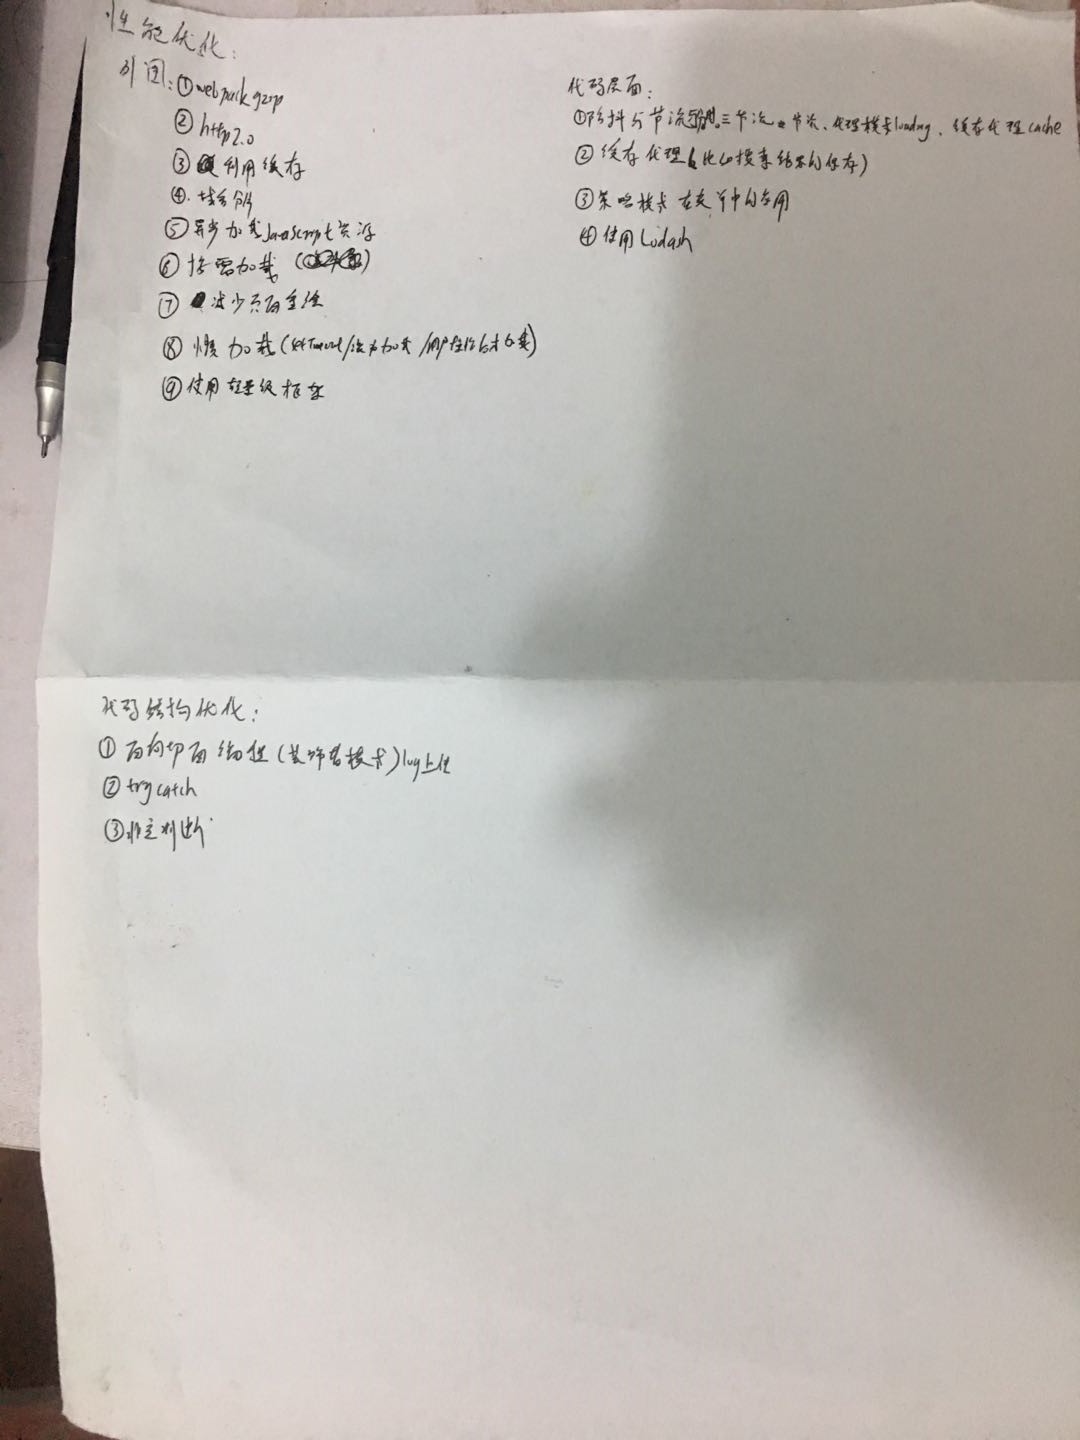 性能优化:
外围:①webpack gzip
②http2.0
③利用缓存
④域名分
⑤异步加载JavaScript资源
⑥按需加载
⑦减少页面重绘
⑧慢加载(setTimeout/滚动加载/用户操作后才加载)
⑨使用轻量级框架
代码层面:
①防抖与节流 节流、代理模式loading、缓存代理cache
②缓存代理(比如搜索结果的保存)
③策略模式在表单中的应用
④使用Lodash
代码结构优化:
①面向切面编程(装饰者模式)log上任
②try catch
③非空判断